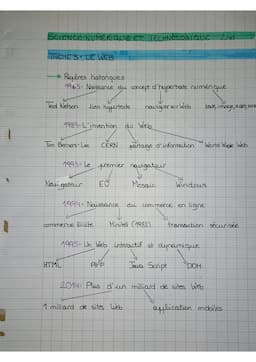 SCIENCE NUMERIQUE ET TECHNOLOGIQUE 2nd
THEME 3: LE WEB
→ Repères historiques
1965: Naissance du concept d'hypertexte numérique
Ted Nelson lien hypertexte naviguer sur Web texte, image, vidéo, son
1989: L'invention du Web
Tim Berners-Lee CERN partage d'information World Wide Web
1993: Le premier navigateur
Navigateur Mosaic Windows
1994: Naissance du commerce en ligne
commerce Minitel (1982) transaction sécurisée
1995: Un Web interactif et dynamique
HTML PHP Java Script DOM
2014: Plus d'un milliard de sites Web
1 milliard de sites Web application mobiles